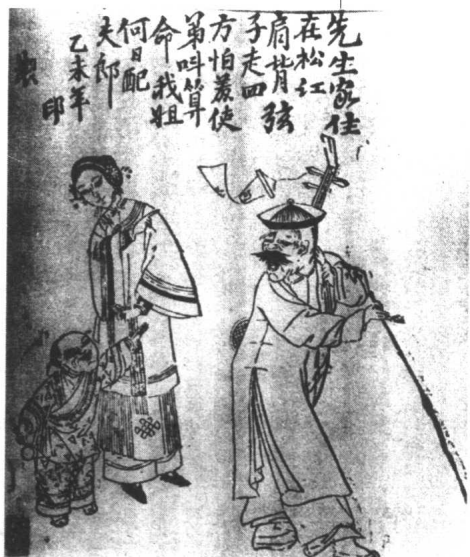 先生家住
在松江
肩背弦
子走四
方怕羞使
弟叫算
命我姐
何日配
夫郎
乙未年
製
印